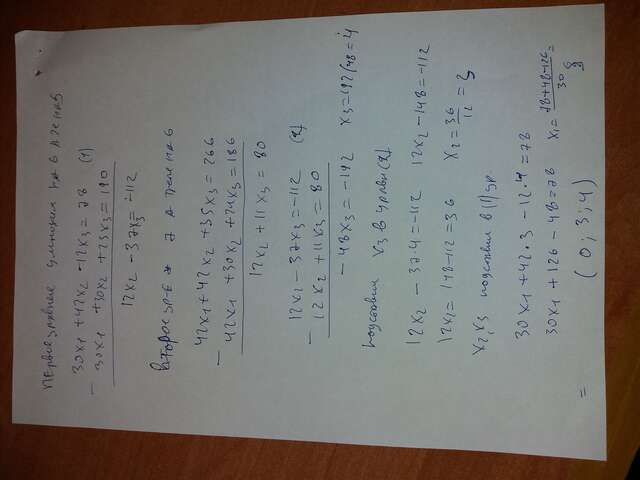 Первое уравнение умножим на 6 а 2е на 5
30x1 + 42x2 - 12x3 = 78 (1)
- 30x1 + 30x2 + 25x3 = 190
12x2 - 37x3 = -112
Второе ур-е * 7 а третье на 6
42x1 + 42x2 + 35x3 = 266
- 42x1 + 30x2 + 24x3 = 186
12x2 + 11x3 = 80
12x2 - 37x3 = -112 (2)
- 12x2 + 11x3 = 80
-48x3 = -192 x3 = 192/48 = 4
подставим x3 в уравн (2)
12x2 - 37·4 = -112 12x2 - 148 = -112
12x2 = 148 - 112 = 36 x2 = 36/12 = 3
x2, x3 подставим в (1) ур.
30x1 + 42·3 - 12·4 = 78
30x1 + 126 - 48 = 78 x1 = 78+48-126/30 =
= (0; 3; 4)